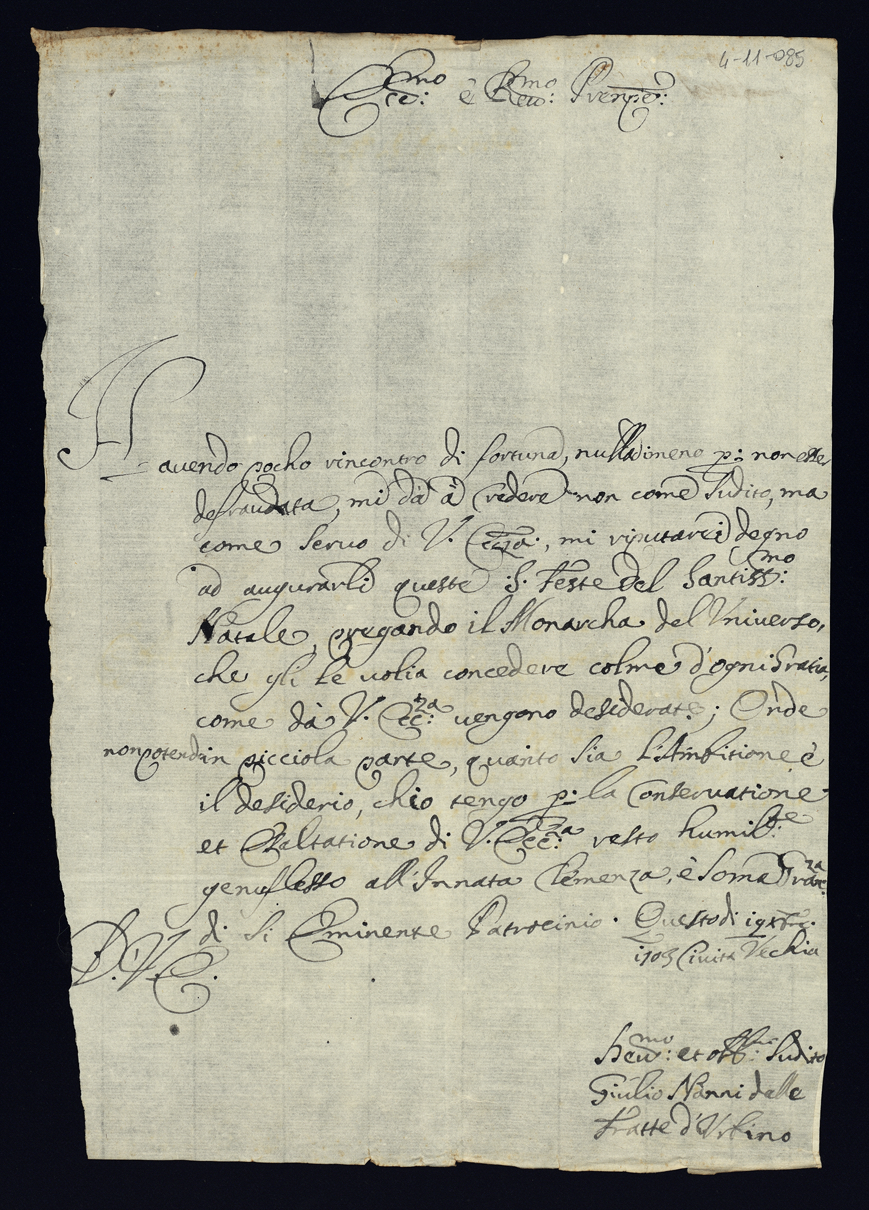 4-11-085
Ecc:mo è Rev:mo Prenpe:
Hauendo pocho rincontro di fortuna, nulladimeno p: non esser
defraudata, mi dà à credere non come sudito, ma
come seruo di V. Ecza., mi riputarei degno
ad augurarli queste S. Feste del Santiss:mo
Natale, pregando il Monarcha del Vniverso,
che gli le uolia concedere colme d'ogni Gratia,
come dà V. Ecc:za uengano desiderate; Onde
non potend in picciola parte, quanto sia l'Ambitione è
il desiderio, ch'io tengo p: la Conseruatione
et Esaltatione di V. Ecc:za resto humil:te
genuflesso all'Innata Clemenza, è Soma
di si Eminente Patrocinio. Questo di 19
Ciuita Vechia
D. V. E.
et Sudito
Giulio Nanni dalle
Fratte d'Urbino